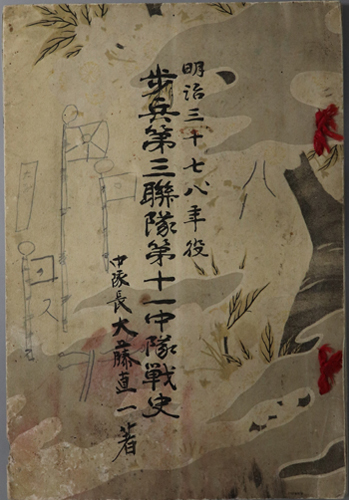 明治三十七八年役
歩兵第三聯隊第十一中隊戦史
中隊長大藤直一著